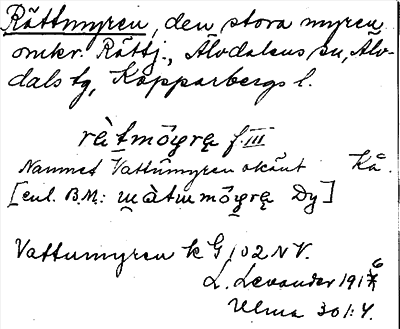 Råttmyren, den stora myren
omkr. Råttj., Älvdalens sn, Älv-
dals tg, Kopparbergs l.
ràtmö̀yrą f. III
Namnet Vattumyren okänt Kå.
[enl. B.M.: wàtmmö̀yrę Dy]
Vattumyren k G 102 NV.
L. Levander 1916
Ulma 301:4.